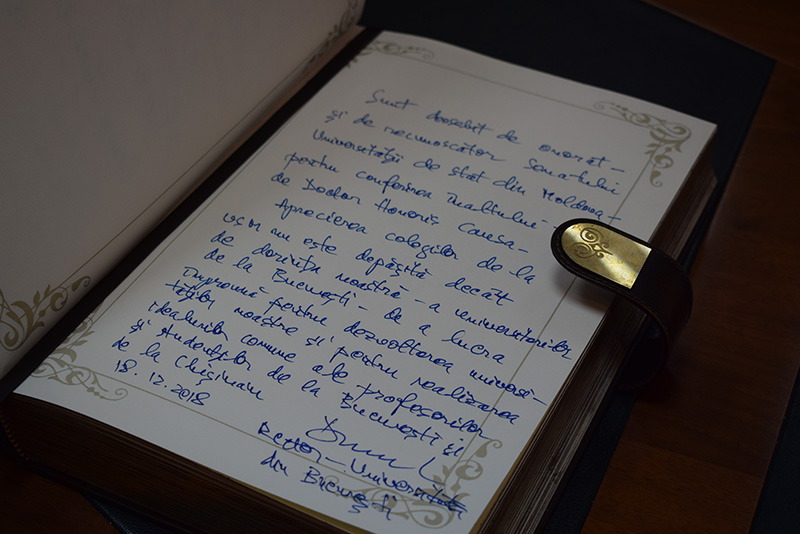 Sunt deosebit de onorat –
și de recunoscător Senatului
Universității de Stat din Moldova –
pentru conferirea înaltului –
de Doctor Honoris Causa –
Aprecierea colegilor de la
USM nu este depășită decât
de dorința noastră – a universitarilor
de la București – de a lucra
împreună pentru dezvoltarea universi–
tăților noastre și pentru realizarea
idealurilor comune ale profesorilor
și studenților de la București și
de la Chișinău
18.12.2018
Rector – Universitatea
din București